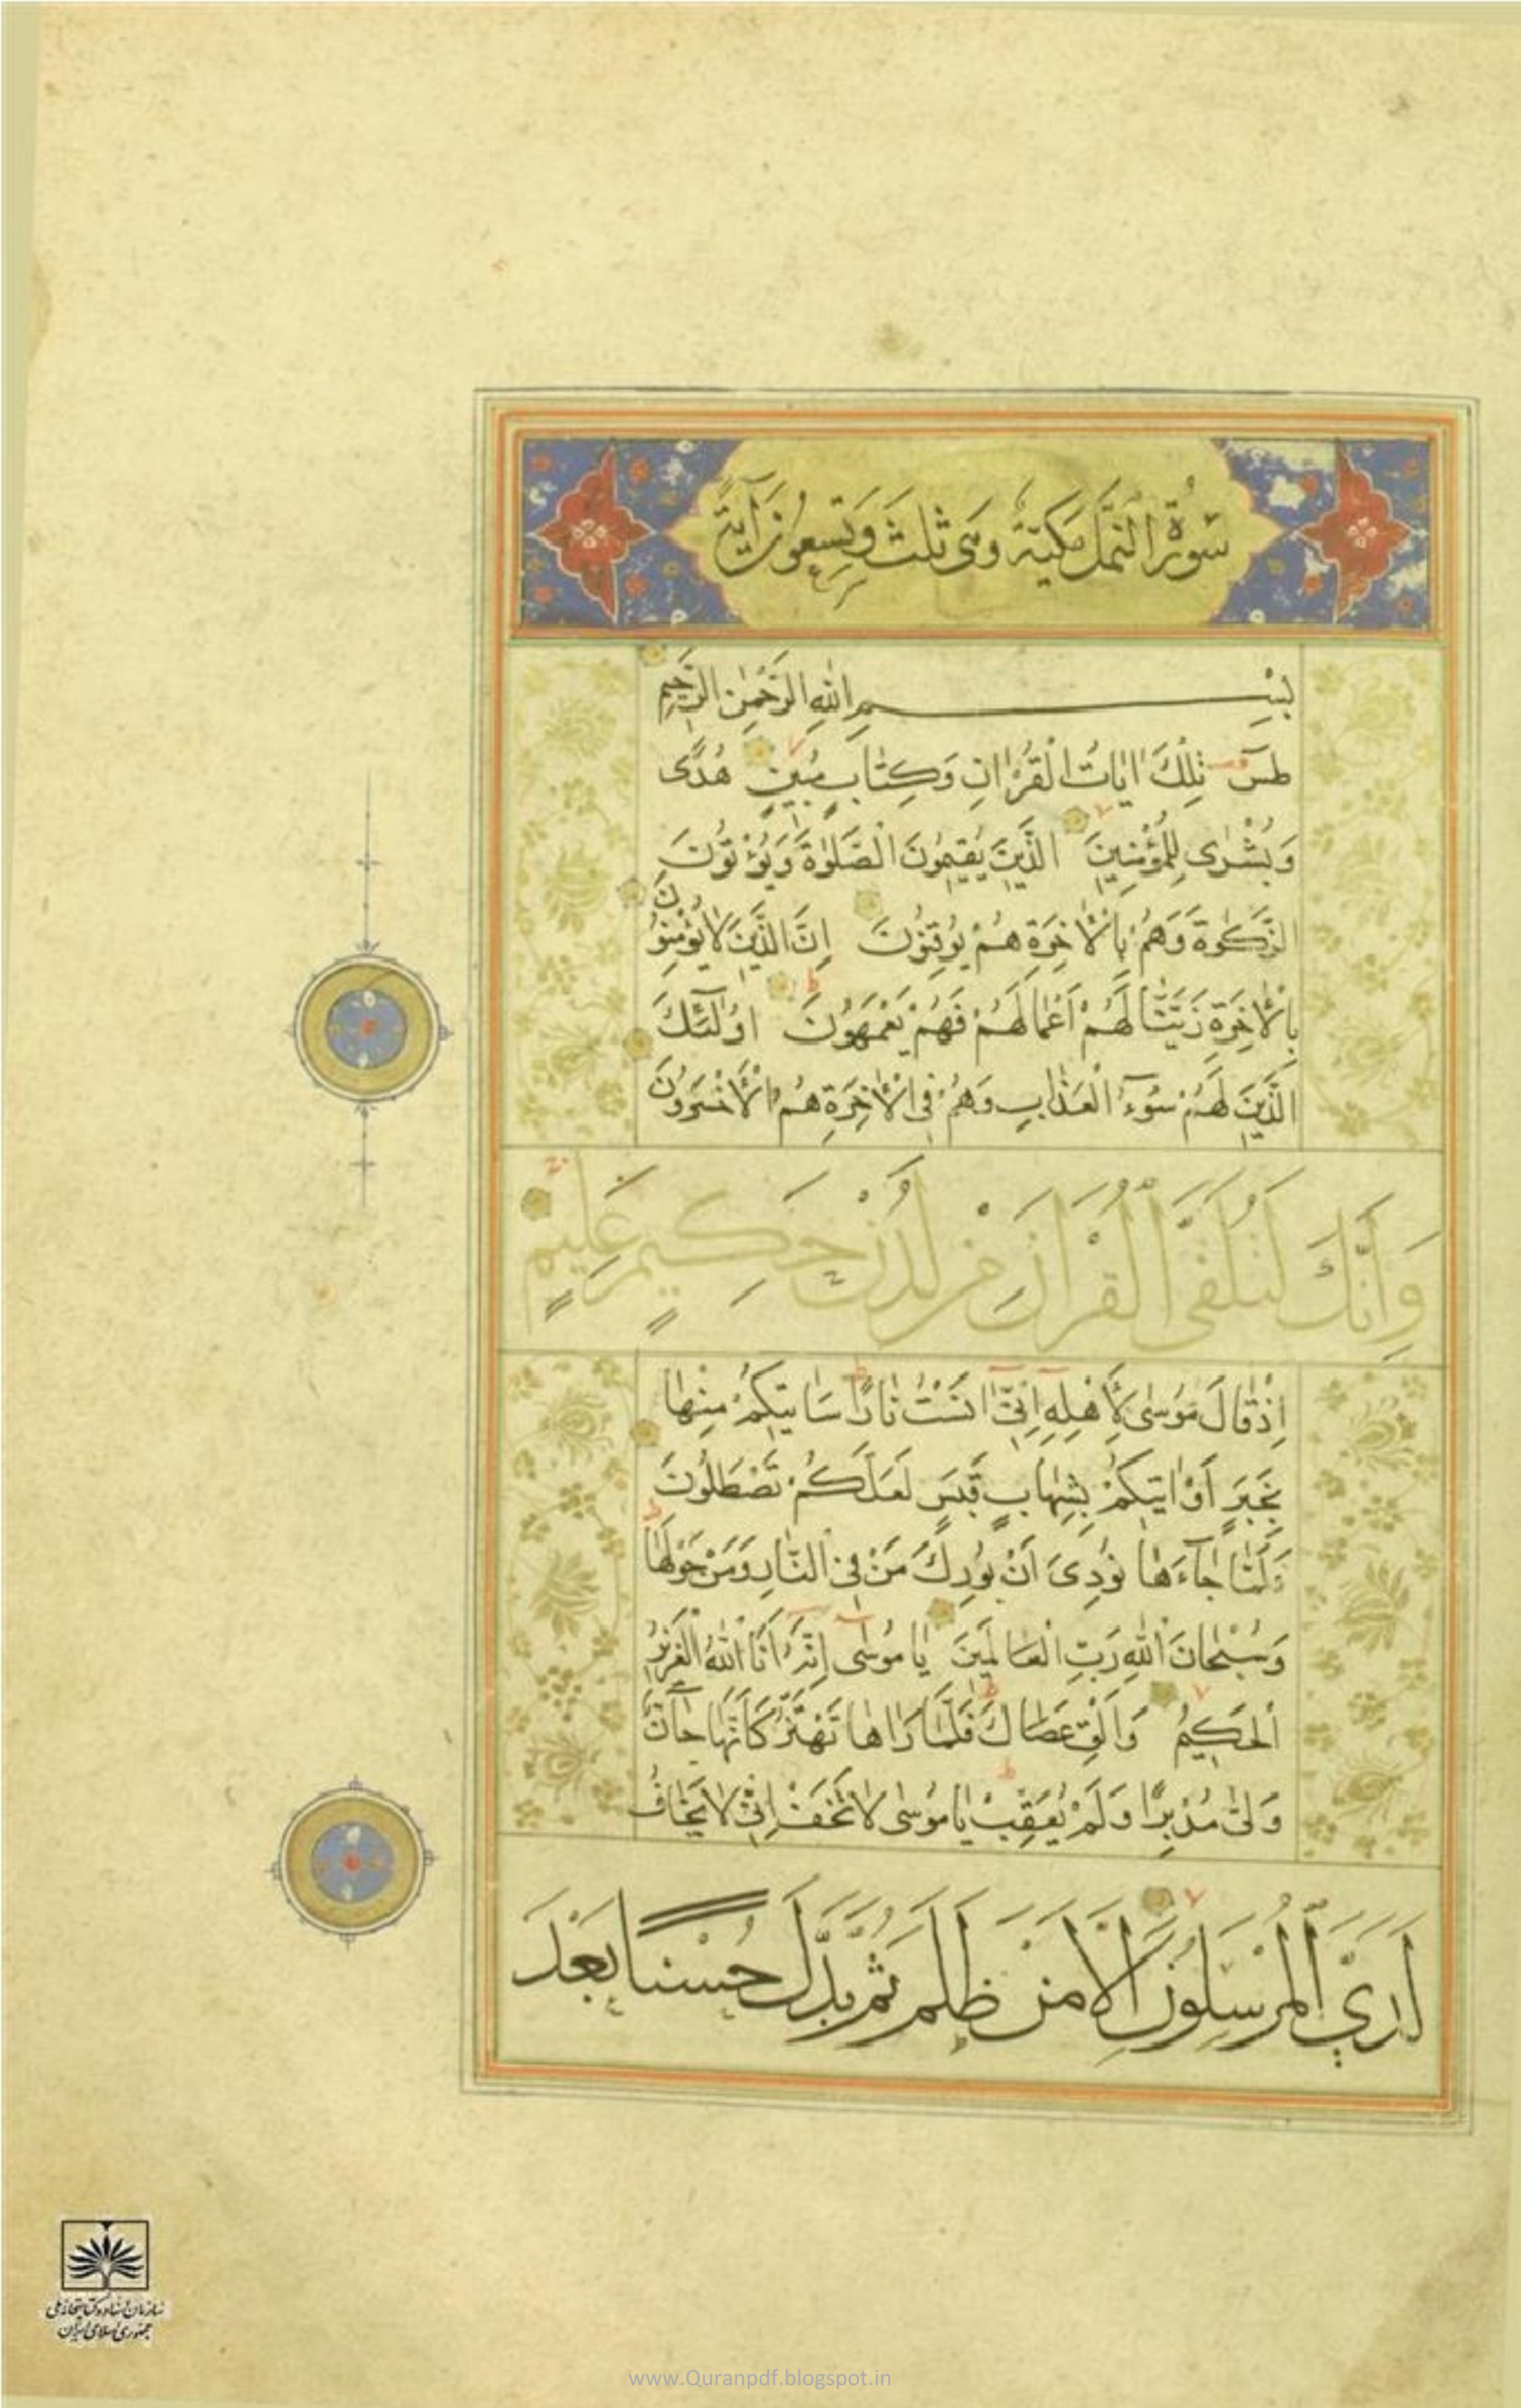 سُورَةُ النَّمْلِ مَكِّيَّةٌ وَهِيَ ثَلٰثٌ وَتِسْعُونَ آيَةً
بِسْمِ اللهِ الرَّحْمٰنِ الرَّحِيمِ
طٰسٓ تِلْكَ اٰيَاتُ الْقُرْاٰنِ وَكِتَابٍ مُبِينٍ هُدًى
وَبُشْرٰى لِلْمُؤْمِنِينَ الَّذِينَ يُقِيمُونَ الصَّلٰوةَ وَيُؤْتُونَ
الزَّكٰوةَ وَهُمْ بِالْاٰخِرَةِ هُمْ يُوقِنُونَ اِنَّ الَّذِينَ لَا يُؤْمِنُونَ
بِالْاٰخِرَةِ زَيَّنَّا لَهُمْ اَعْمَالَهُمْ فَهُمْ يَعْمَهُونَ اُولٰٓئِكَ
الَّذِينَ لَهُمْ سُوٓءُ الْعَذَابِ وَهُمْ فِي الْاٰخِرَةِ هُمُ الْاَخْسَرُونَ
وَاِنَّكَ لَتُلَقَّى الْقُرْاٰنَ مِنْ لَدُنْ حَكِيمٍ عَلِيمٍ
اِذْ قَالَ مُوسٰى لِاَهْلِهٓ اِنِّىٓ اٰنَسْتُ نَارًا سَاٰتِيكُمْ مِنْهَا
بِخَبَرٍ اَوْ اٰتِيكُمْ بِشِهَابٍ قَبَسٍ لَعَلَّكُمْ تَصْطَلُونَ
فَلَمَّا جَآءَهَا نُودِىَ اَنْ بُورِكَ مَنْ فِى النَّارِ وَمَنْ حَوْلَهَا
وَسُبْحَانَ اللهِ رَبِّ الْعَالَمِينَ يَا مُوسٰىٓ اِنَّهُٓ اَنَا اللهُ الْعَزِيزُ
الْحَكِيمُ وَاَلْقِ عَصَاكَ فَلَمَّا رَاٰهَا تَهْتَزُّ كَاَنَّهَا جَآنٌّ
وَلّٰى مُدْبِرًا وَلَمْ يُعَقِّبْ يَا مُوسٰى لَا تَخَفْ اِنِّى لَا يَخَافُ
لَدَيَّ الْمُرْسَلُونَ اِلَّا مَنْ ظَلَمَ ثُمَّ بَدَّلَ حُسْنًا بَعْدَ
سازمان اسناد و کتابخانه ملی
جمهوری اسلامی ایران
www.Quranpdf.blogspot.in